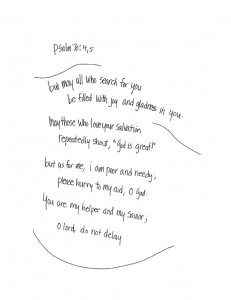 psalm 70:4,5
but may all who search for you
be filled with joy and gladness in you.
may those who love your salvation
repeatedly shout, "God is great!"
but as for me, i am poor and needy;
please hurry to my aid, O God.
you are my helper and my savior;
O lord, do not delay